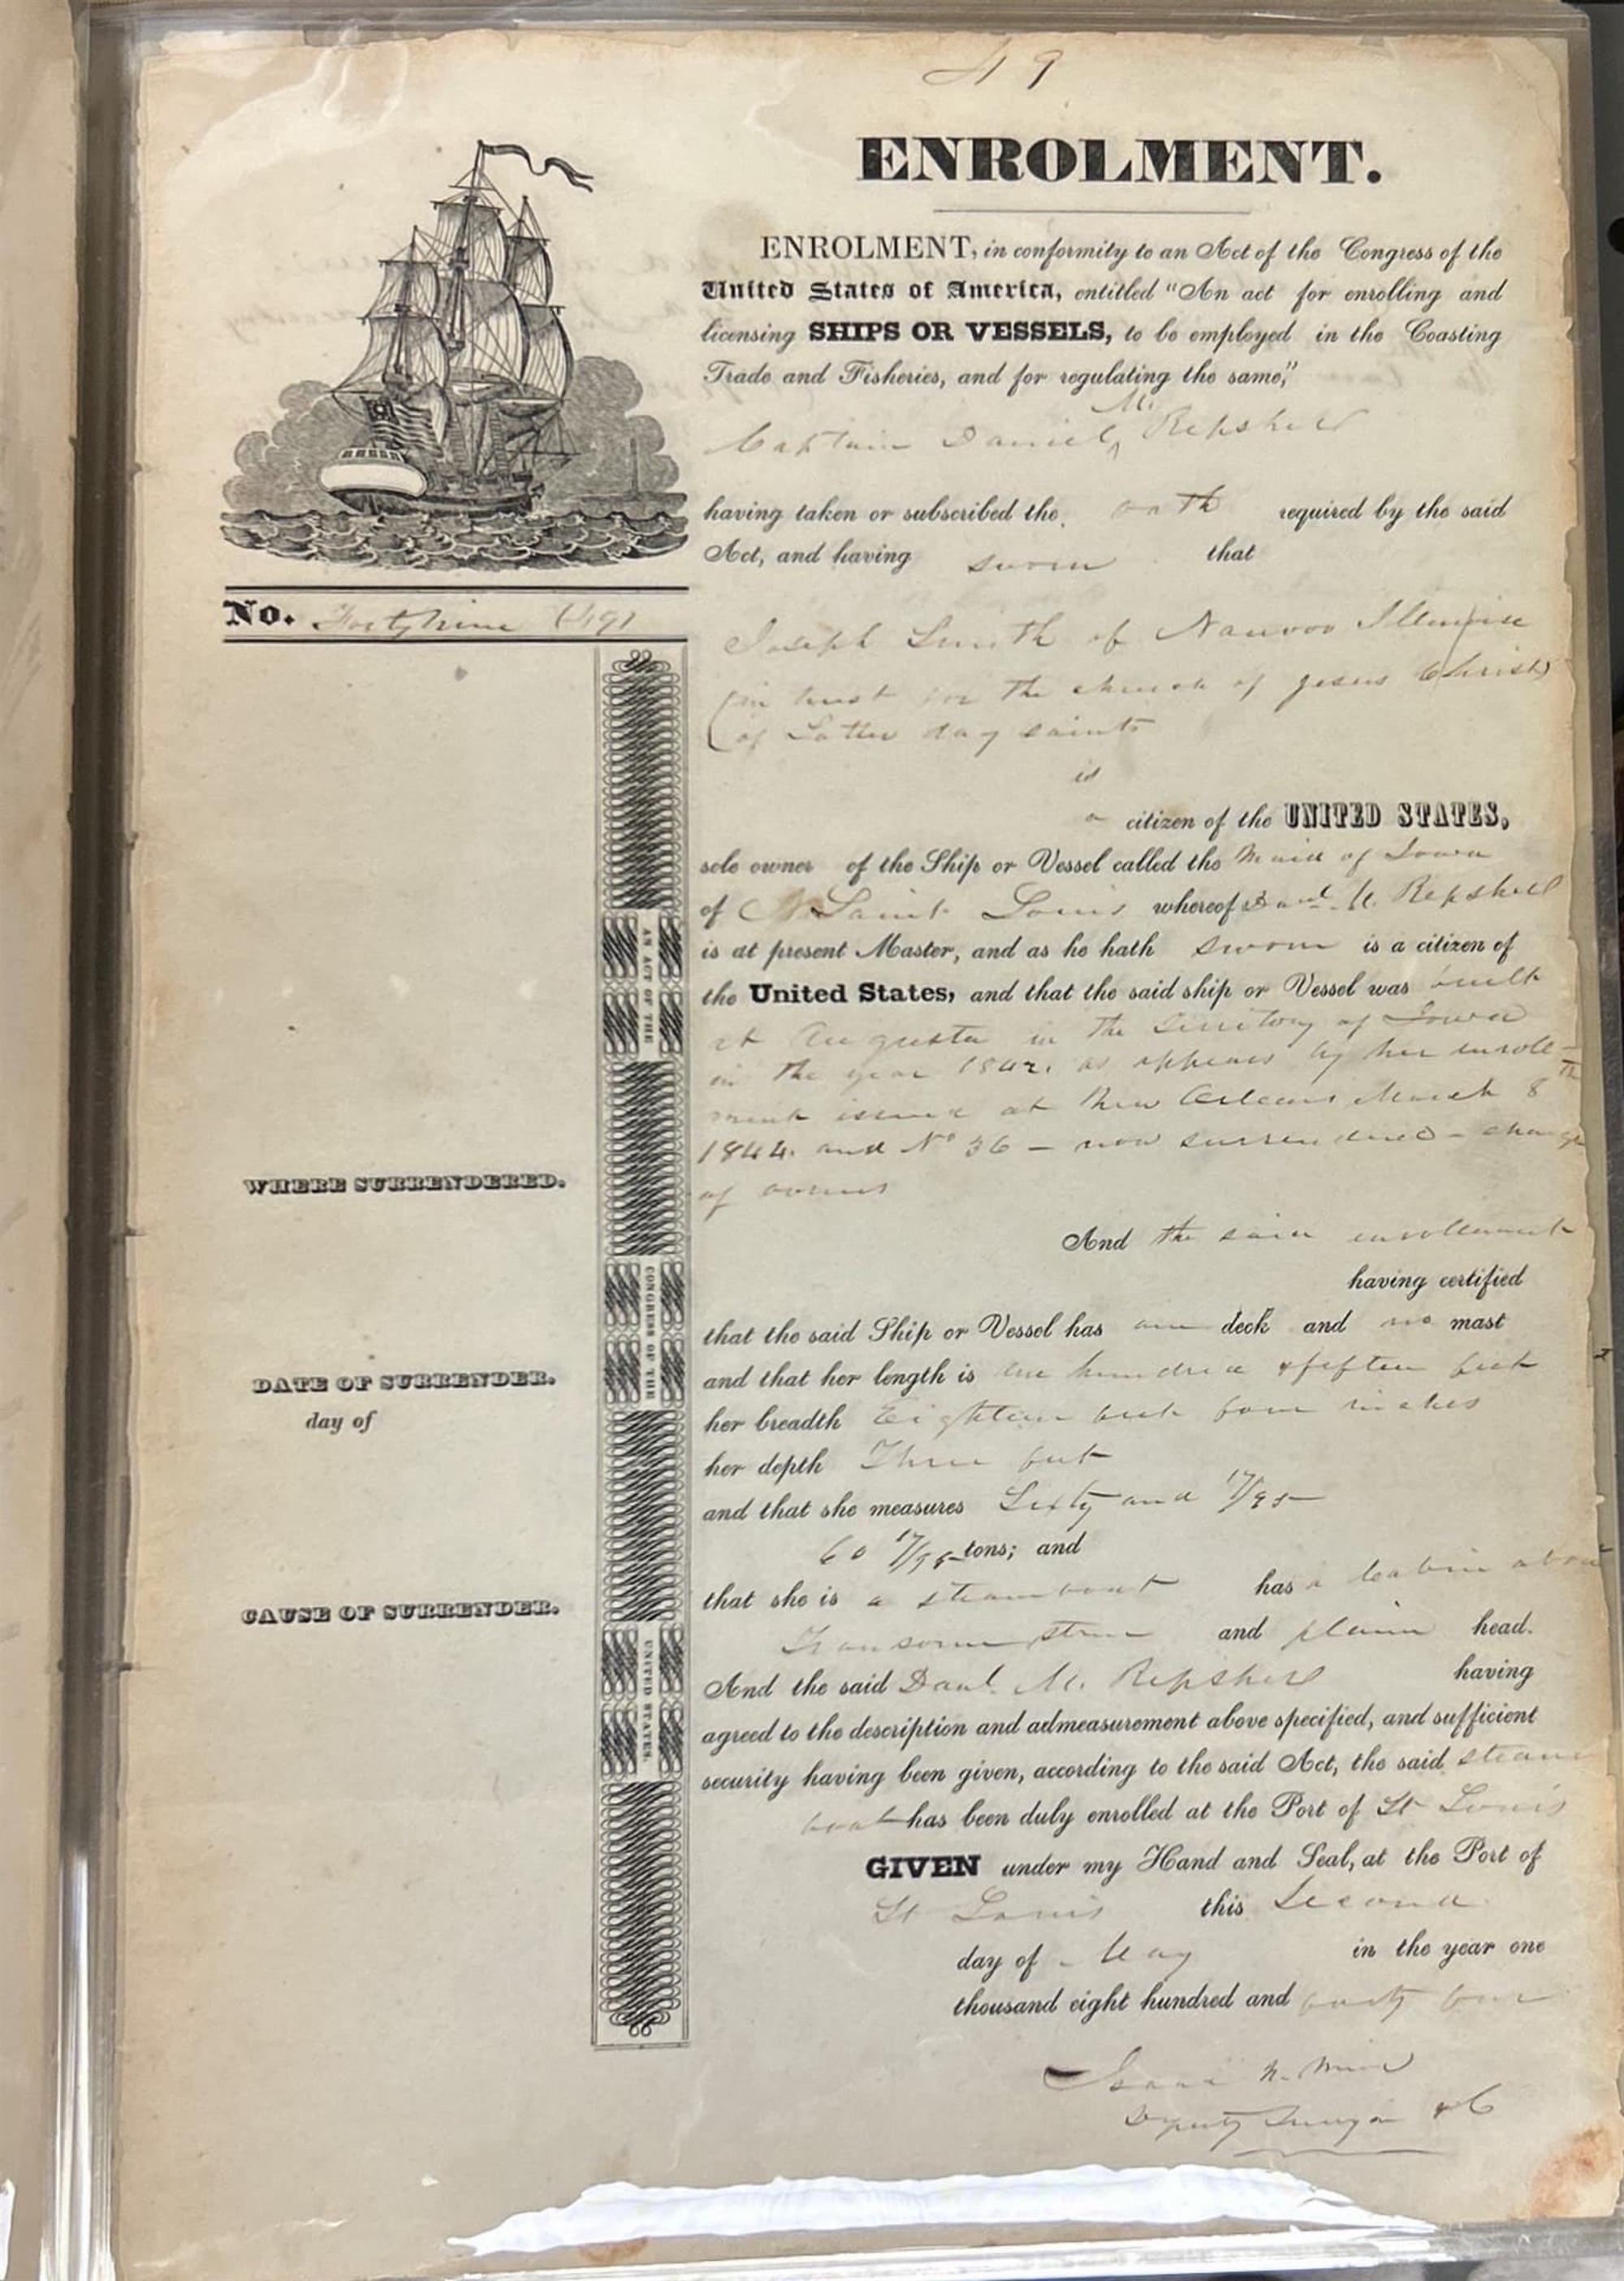 49
ENROLMENT.
ENROLMENT, in conformity to an Act of the Congress of the
United States of America, entitled "An act for enrolling and
licensing SHIPS OR VESSELS, to be employed in the Coasting
Trade and Fisheries, and for regulating the same,"
M.
Captain Daniel Repsher
having taken or subscribed the oath required by the said
Act, and having sworn that
No. Forty nine (49)
Joseph Smith of Nauvoo Illinois
(in trust for the church of jesus Christ)
(of Latter day saints
is
a citizen of the UNITED STATES,
sole owner of the Ship or Vessel called the Maid of Iowa
of Saint Louis whereof Danl. M. Repsher
is at present Master, and as he hath sworn is a citizen of
the United States, and that the said ship or Vessel was built
at Augusta in the Territory of Iowa
in the year 1842. as appears by her enroll-
ment issued at New Orleans March 8th
1844. and No 36 - now surrendered - change
of owner
WHERE SURRENDERED.
And the said enrollment
having certified
that the said Ship or Vessel has one deck and no mast
and that her length is one hundred & fifteen feet
DATE OF SURRENDER.
day of
her breadth Eighteen feet four inches
her depth Three feet
and that she measures Sixty and 17/95
60 17/95 tons; and
that she is a steam boat has a Cabin above
CAUSE OF SURRENDER.
Transom stern and plain head.
And the said Danl. M. Repsher having
agreed to the description and admeasurement above specified, and sufficient
security having been given, according to the said Act, the said steam
boat has been duly enrolled at the Port of St Louis
GIVEN under my Hand and Seal, at the Port of
St Louis this Second
day of May in the year one
thousand eight hundred and forty four
Isaac N.
Deputy &C
AN ACT OF THE
CONGRESS OF THE
UNITED STATES.